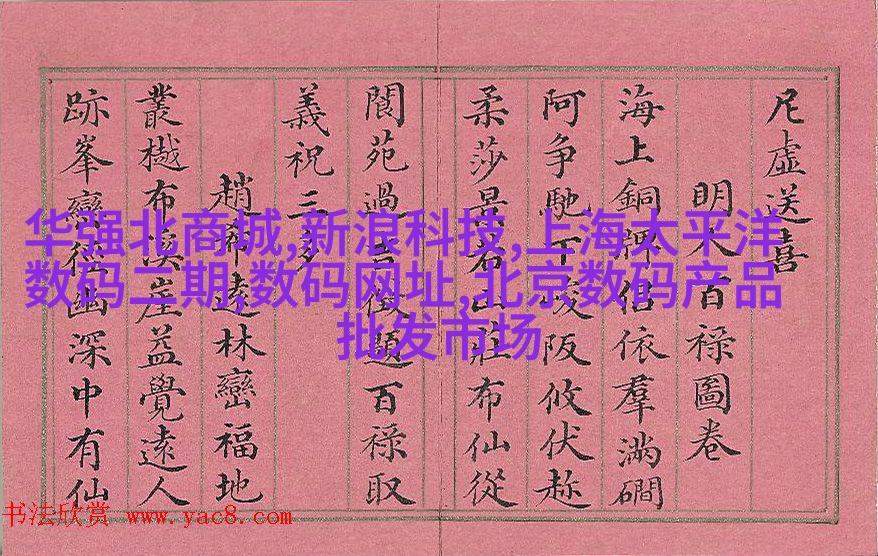 华强北商城,新浪科技,上海太平洋
数码二期,数码网址,北京数码产品
批发市场
尼虛送喜
明人百祿圖卷
海上銅牌侣依羣滿磵
阿争馳下峻阪攸伏
柔莎 右山莊布仙從
閬苑過 題百祿取
義祝三多
趙希遠林巒福地
叢樾布溪崖益覺遠人
跡峯巒徑幽深中有仙
书法欣赏 www.yac8.com